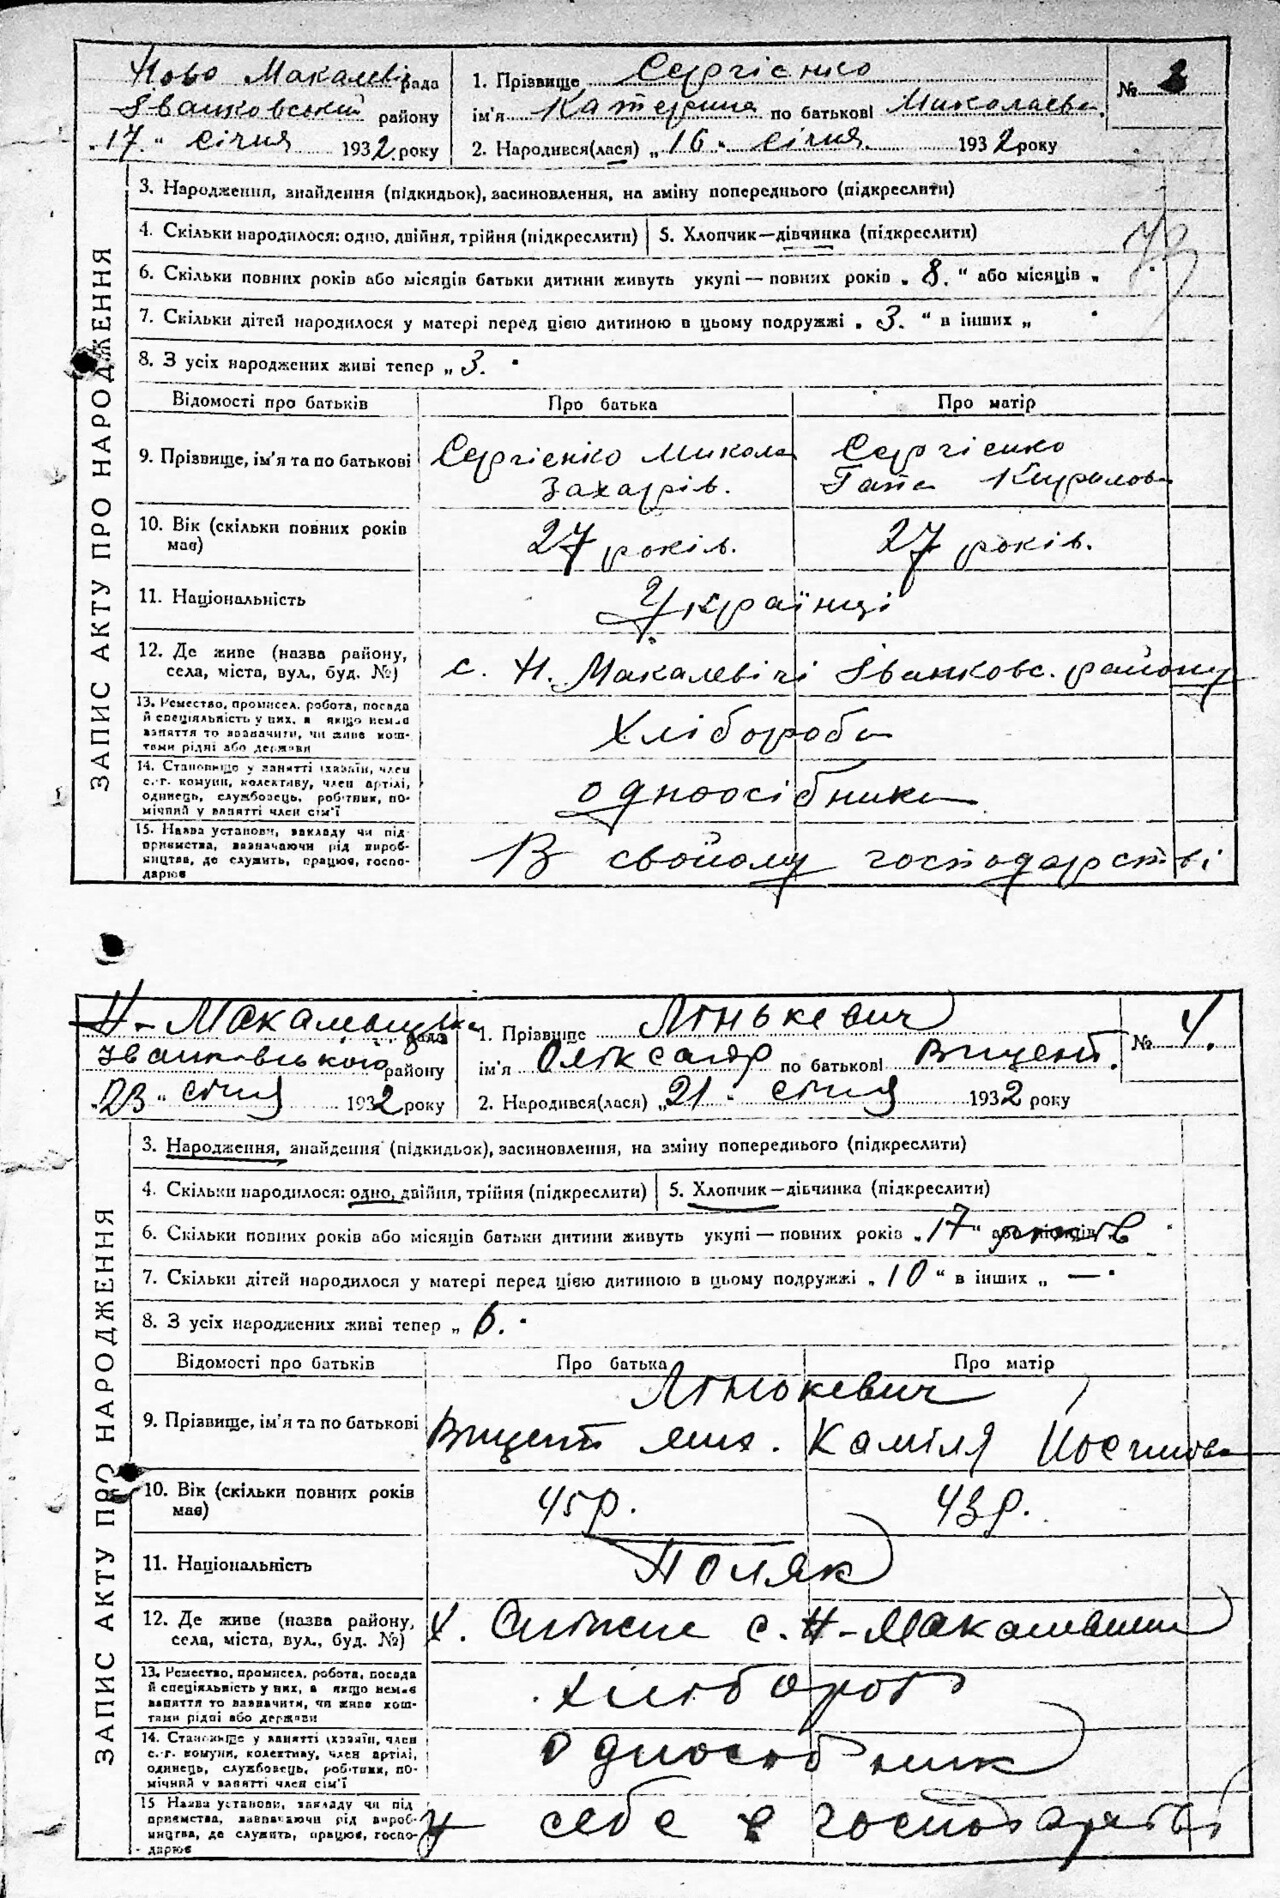 Ново Макалевіч рада
Іванковський району
„17“ січня 1932 року
1. Прізвище Сергієнко
ім'я Катерина по батькові Миколаєвн.
2. Народився(лася) „16„ січня 1932 року
№ 3
ЗАПИС АКТУ ПРО НАРОДЖЕННЯ
3. Народження, знайдення (підкидьок), засиновлення, на зміну попереднього (підкреслити)
4. Скільки народилося: одно, двійня, трійня (підкреслити) 5. Хлопчик—дівчинка (підкреслити)
6. Скільки повних років або місяців батьки дитини живуть укупі — повних років „8.“ або місяців „
7. Скільки дітей народилося у матері перед цією дитиною в цьому подружжі „3.“ в інших „
8. З усіх народжених живі тепер „3.
Відомості про батьків Про батька Про матір
9. Прізвище, ім'я та по батькові Сергієнко Микола Сергієнко
Захарів. Гапа Кирилов
10. Вік (скільки повних років
має) 27 років. 27 років.
11. Національність Українці
12. Де живе (назва району,
села, міста, вул., буд. №) с. Н. Макалевічі Іванковс. району
13. Ремество, промисел, робота, посада
й спеціяльність у них, а якщо немає
заняття то зазначити, чи живе кош-
тами рідні або держави Хлібороби
14. Становище у занятті (хазяїн, член
с.-г. комуни, колективу, член артілі,
одинець, службовець, робітник, по-
мічний у занятті член сім'ї одноосібники
15. Назва установи, закладу чи під-
приємства, зазначаючи рід вироб-
ництва, де служить, працює, госпо-
дарює В свойому господарстві
Н-Макалевицька рада
Іванковського району
„23“ січня 1932 року
1. Прізвище Лінькевич
ім'я Олександр по батькові Вицент.
2. Народився(лася) „21„ січня 1932 року
№ 4.
ЗАПИС АКТУ ПРО НАРОДЖЕННЯ
3. Народження, знайдення (підкидьок), засиновлення, на зміну попереднього (підкреслити)
4. Скільки народилося: одно, двійня, трійня (підкреслити) 5. Хлопчик—дівчинка (підкреслити)
6. Скільки повних років або місяців батьки дитини живуть укупі — повних років „17“ або місяців років
7. Скільки дітей народилося у матері перед цією дитиною в цьому подружжі „10“ в інших „ —
8. З усіх народжених живі тепер „6.
Відомості про батьків Про батька Про матір
Лінькевич
9. Прізвище, ім'я та по батькові Вицент Камілія Йосипов
10. Вік (скільки повних років
має) 45 р. 43 р.
11. Національність Поляк
12. Де живе (назва району,
села, міста, вул., буд. №) х. с. Н-Макалевичи
13. Ремество, промисел, робота, посада
й спеціяльність у них, а якщо немає
заняття то зазначити, чи живе кош-
тами рідні або держави хлібороб
14. Становище у занятті (хазяїн, член
с.-г. комуни, колективу, член артілі,
одинець, службовець, робітник, по-
мічний у занятті член сім'ї одноосібник
15 Назва установи, закладу чи під
приємства, зазначаючи рід вироб-
ництва, де служить, працює, госпо-
дарює у себе в господарстві